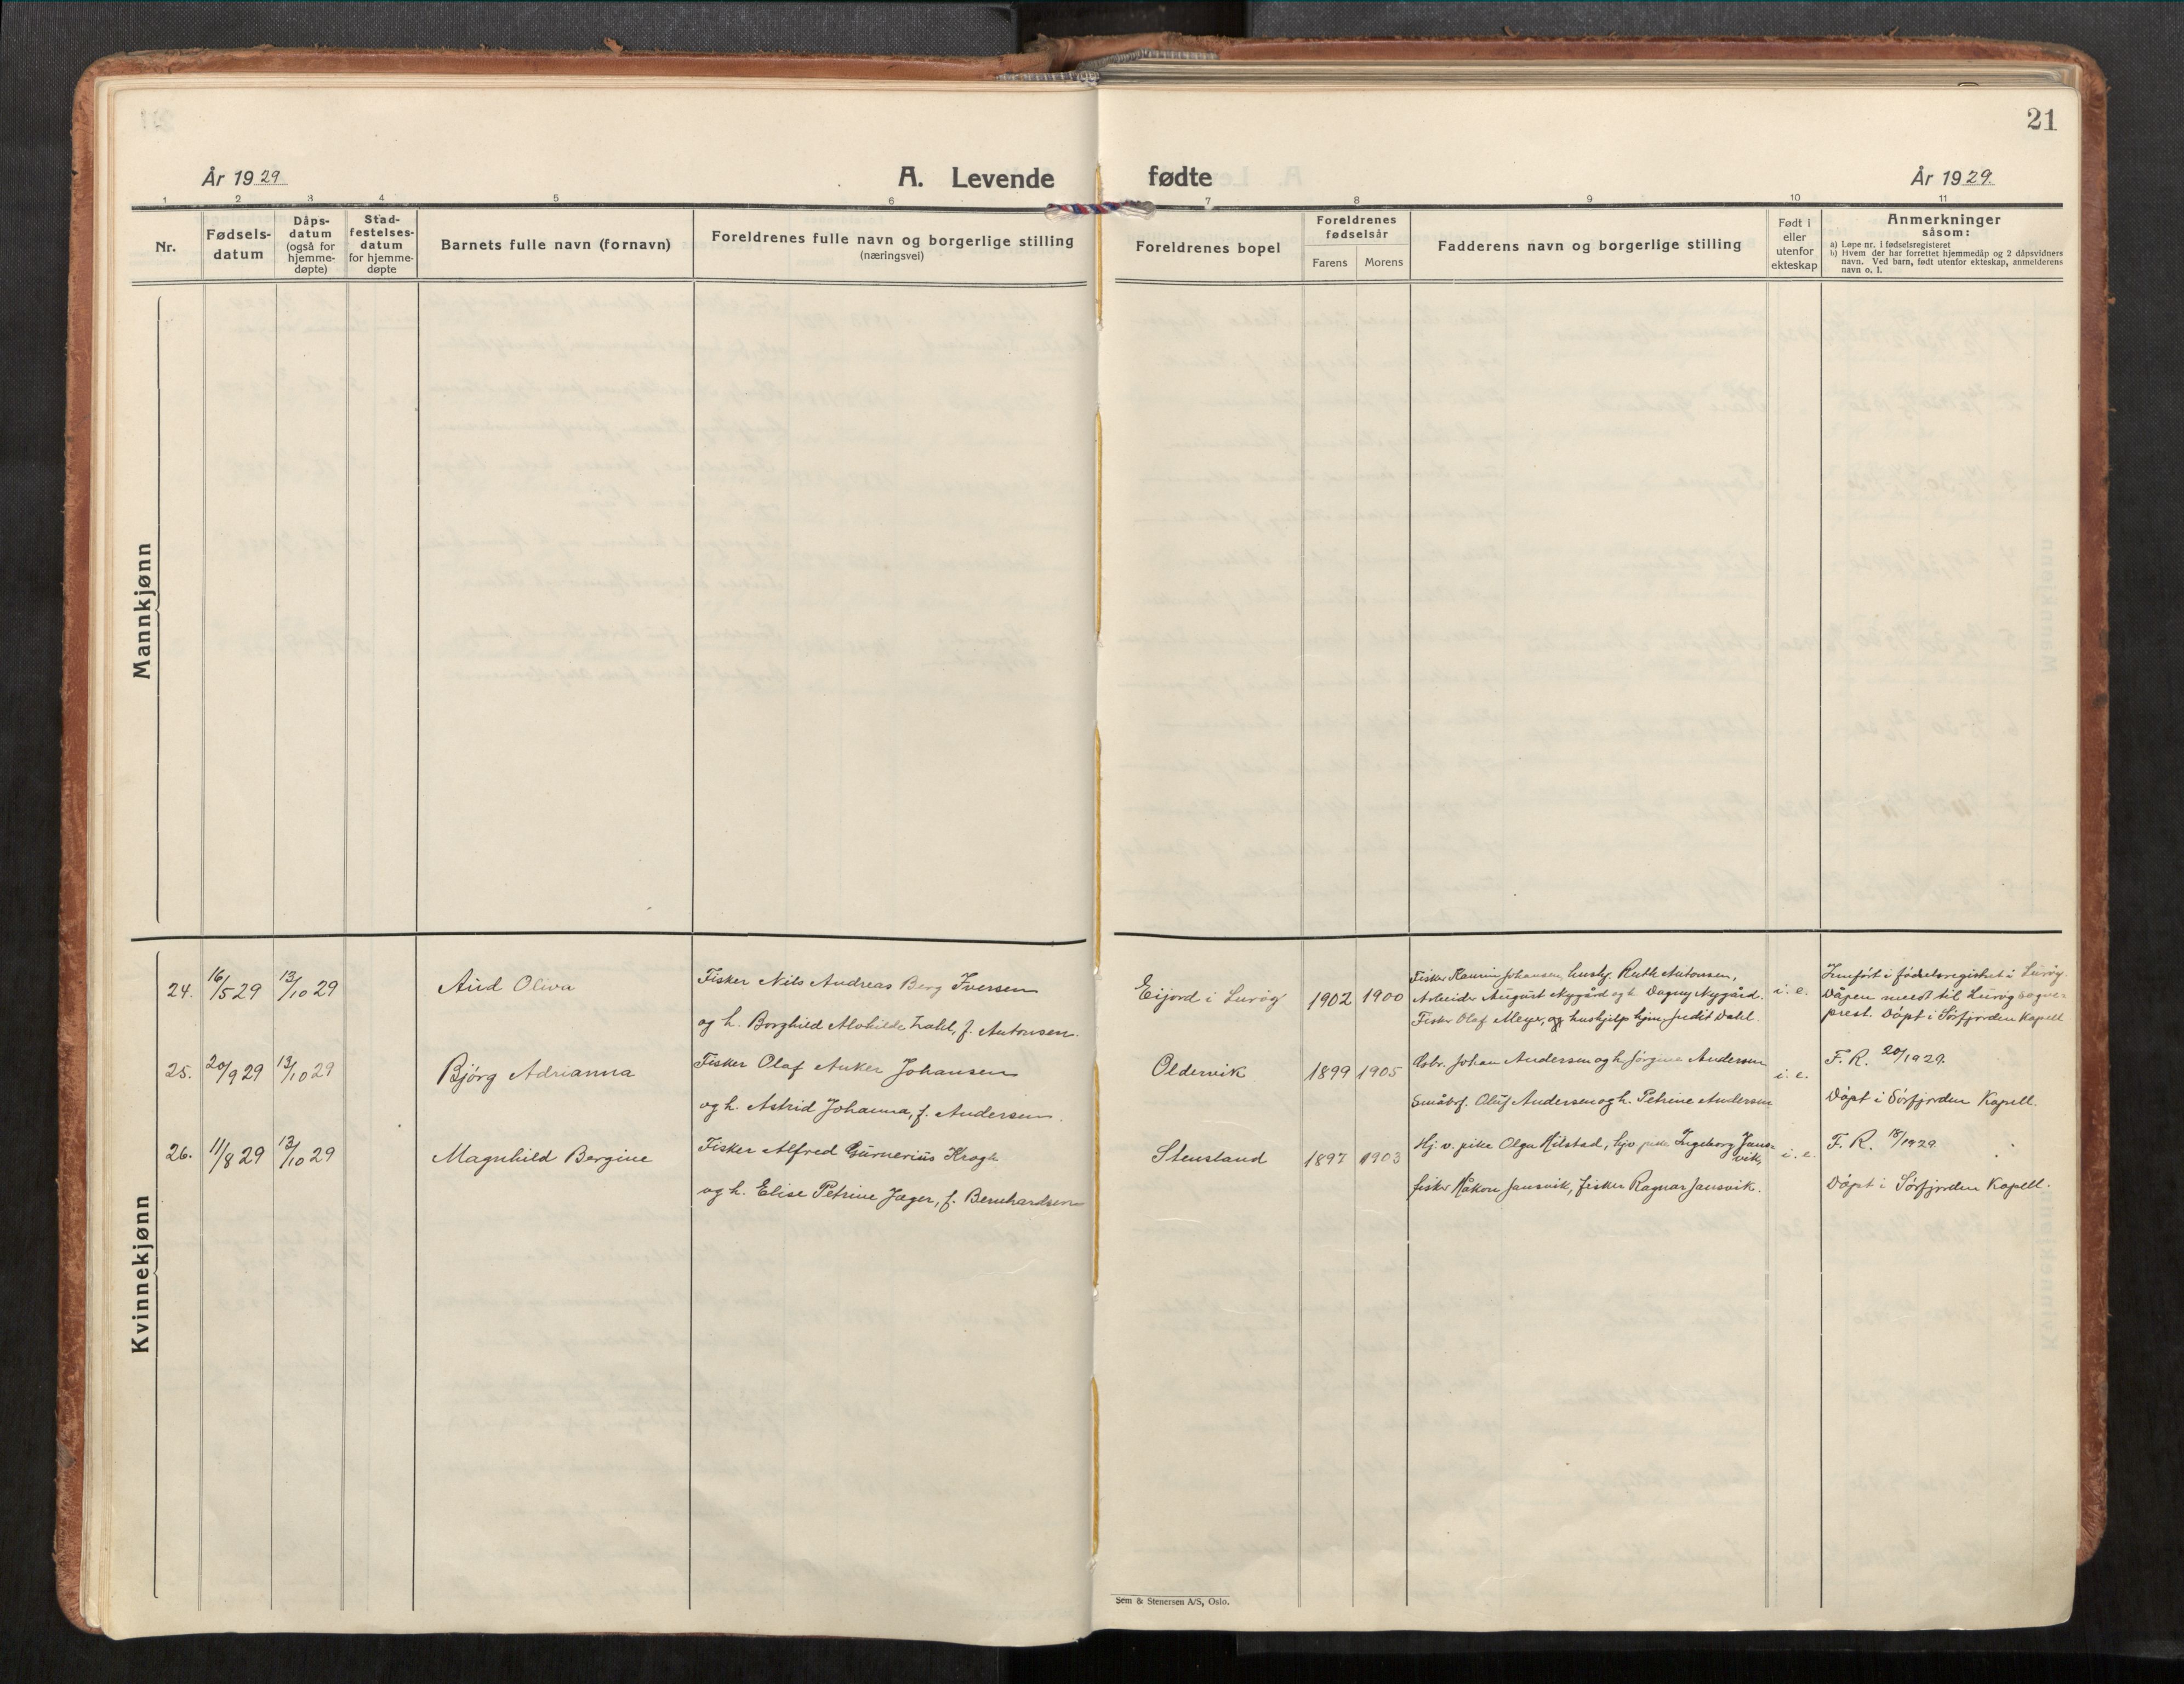 21
År 1929
A. Levende fødte
År 1929.
1 2 3 4 5 6 7 8 9 10 11
Nr.
Fødsels-
datum
Dåps-
datum
(også for
hjemme-
døpte)
Stad-
festelses-
datum
for hjemme-
døpte
Barnets fulle navn (fornavn)
Foreldrenes fulle navn og borgerlige stilling
(næringsvei)
Foreldrenes bopel
Foreldrenes
fødselsår
Farens Morens
Fadderens navn og borgerlige stilling
Født i
eller
utenfor
ekteskap
Anmerkninger
såsom:
a) Løpe nr. i fødselsregisteret
b) Hvem der har forrettet hjemmedåp og 2 dåpsvidners
navn. Ved barn, født utenfor ekteskap, anmelderens
navn o. l.
Mannkjønn
Kvinnekjønn
24. 16/5 29 13/10 29 Aud Oliva
Fisker Nils Andreas Berg Iversen
og h. Borghild Alvhilde Zahl, f. Antonsen.
Eijord i Lurøy 1902 1900
Fisker Kaurin Johansen, husty. Ruth Antonsen,
Arbeider August Nygård og h. Dagny Nygård.
Fisker Olaf Meyer, og hushjelp hjm. Judit Dahl.
i. e.
Innført i fødselsregistret i Lurøy.
Dåpen meldt til Lurøy sogne-
prest. Døpt i Sørfjorden Kapell
25. 20/9 29 13/10 29 Bjørg Adrianna
Fisker Olaf Anker Johansen
og h. Astrid Johanna, f. Andersen.
Oldervik 1899 1905
Gbr. Johan Andersen og h. Jørgine Andersen
Småbr. Oluf Andersen og h. Petrine Andersen
i. e.
F. R. 20/1929.
Døpt i Sørfjorden Kapell.
26. 11/8 29 13/10 29 Magnhild Bergine
Fisker Alfred Gunerius Krogh
og h. Elise Petrine Jæger, f. Bernhardsen
Stensland 1897 1903
Hj. v. pike Olga Hilstad, hjv. pike Ingeborg Jans-
vik,
fisker Håkon Jansvik, fisker Ragnar Jansvik.
i. e.
F. R. 18/1929.
Døpt i Sørfjorden Kapell.
Sem & Stenersen A/S, Oslo.